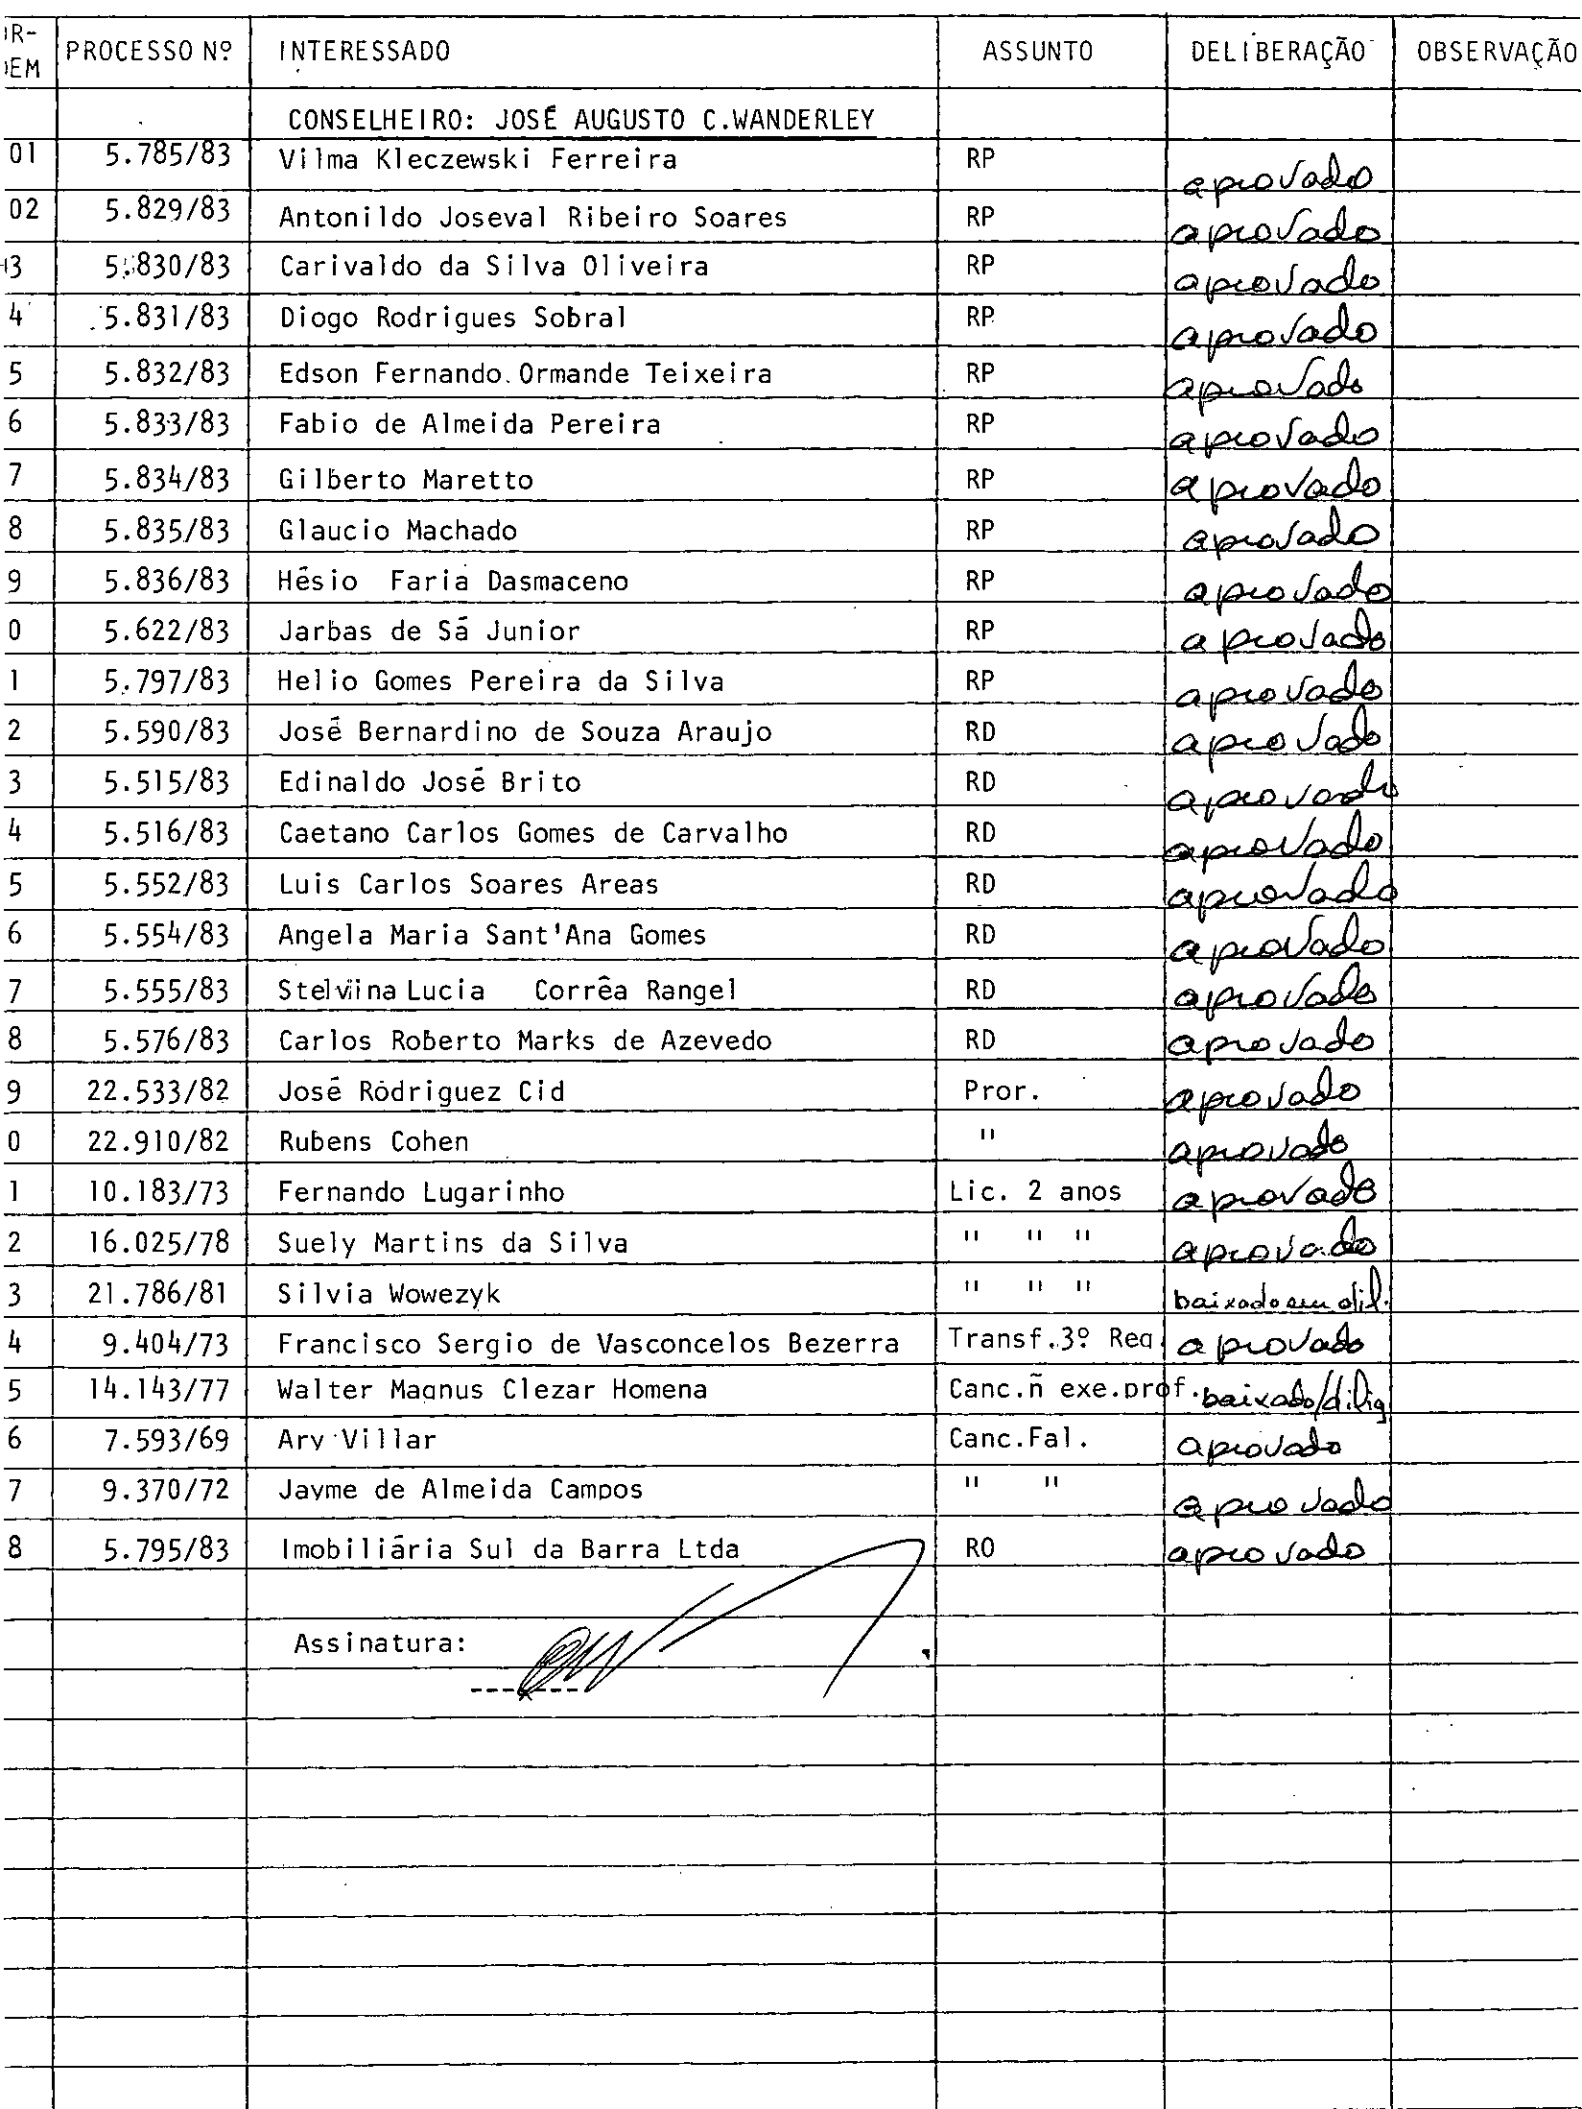 PROCESSO Nº INTERESSADO ASSUNTO DELIBERAÇÃO OBSERVAÇÃO
CONSELHEIRO: JOSÉ AUGUSTO C.WANDERLEY
01 5.785/83 Vilma Kleczewski Ferreira RP aprovado
02 5.829/83 Antonildo Joseval Ribeiro Soares RP aprovado
3 5.830/83 Carivaldo da Silva Oliveira RP aprovado
4 5.831/83 Diogo Rodrigues Sobral RP aprovado
5 5.832/83 Edson Fernando Ormande Teixeira RP aprovado
6 5.833/83 Fabio de Almeida Pereira RP aprovado
7 5.834/83 Gilberto Maretto RP aprovado
8 5.835/83 Glaucio Machado RP aprovado
9 5.836/83 Hésio Faria Dasmaceno RP aprovado
0 5.622/83 Jarbas de Sá Junior RP aprovado
1 5.797/83 Helio Gomes Pereira da Silva RP aprovado
2 5.590/83 José Bernardino de Souza Araujo RD aprovado
3 5.515/83 Edinaldo José Brito RD aprovado
4 5.516/83 Caetano Carlos Gomes de Carvalho RD aprovado
5 5.552/83 Luis Carlos Soares Areas RD aprovado
6 5.554/83 Angela Maria Sant'Ana Gomes RD aprovado
7 5.555/83 Lucia Corrêa Rangel RD aprovado
8 5.576/83 Carlos Roberto Marks de Azevedo RD aprovado
9 22.533/82 José Rodriguez Cid Pror. aprovado
0 22.910/82 Rubens Cohen " aprovado
1 10.183/73 Fernando Lugarinho Lic. 2 anos aprovado
2 16.025/78 Suely Martins da Silva " " " aprovado
3 21.786/81 Silvia Wowezyk " " " baixado em dil.
4 9.404/73 Francisco Sergio de Vasconcelos Bezerra Transf.3º Reg. aprovado
5 14.143/77 Walter Magnus Clezar Homena Canc.ñ exe.prof. baixado/dilig
6 7.593/69 Ary Villar Canc.Fal. aprovado
7 9.370/72 Jayme de Almeida Campos " " aprovado
8 5.795/83 Imobiliária Sul da Barra Ltda RO aprovado
Assinatura: